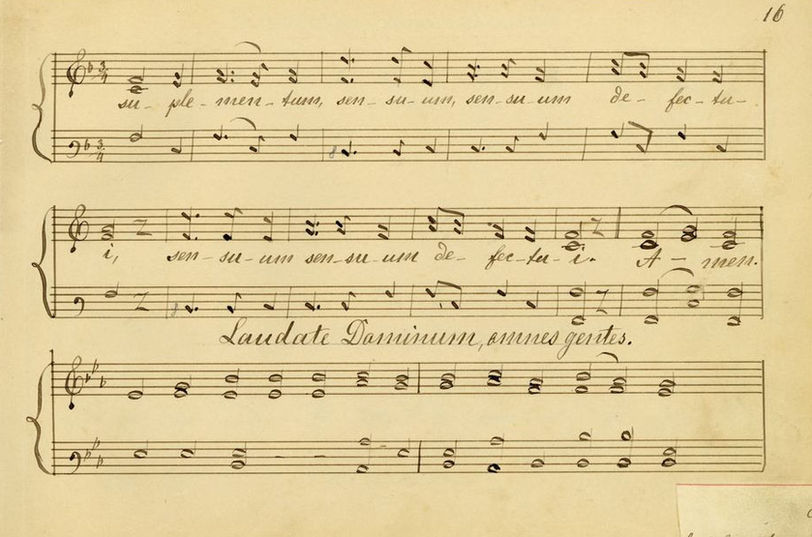 16
su- ple- men- tum, sen- su- um, sen- su- um de- fec- tu-
i, sen- su- um sen- su- um de- fec- tu- i. A- men.
Laudate Dominum, omnes gentes.